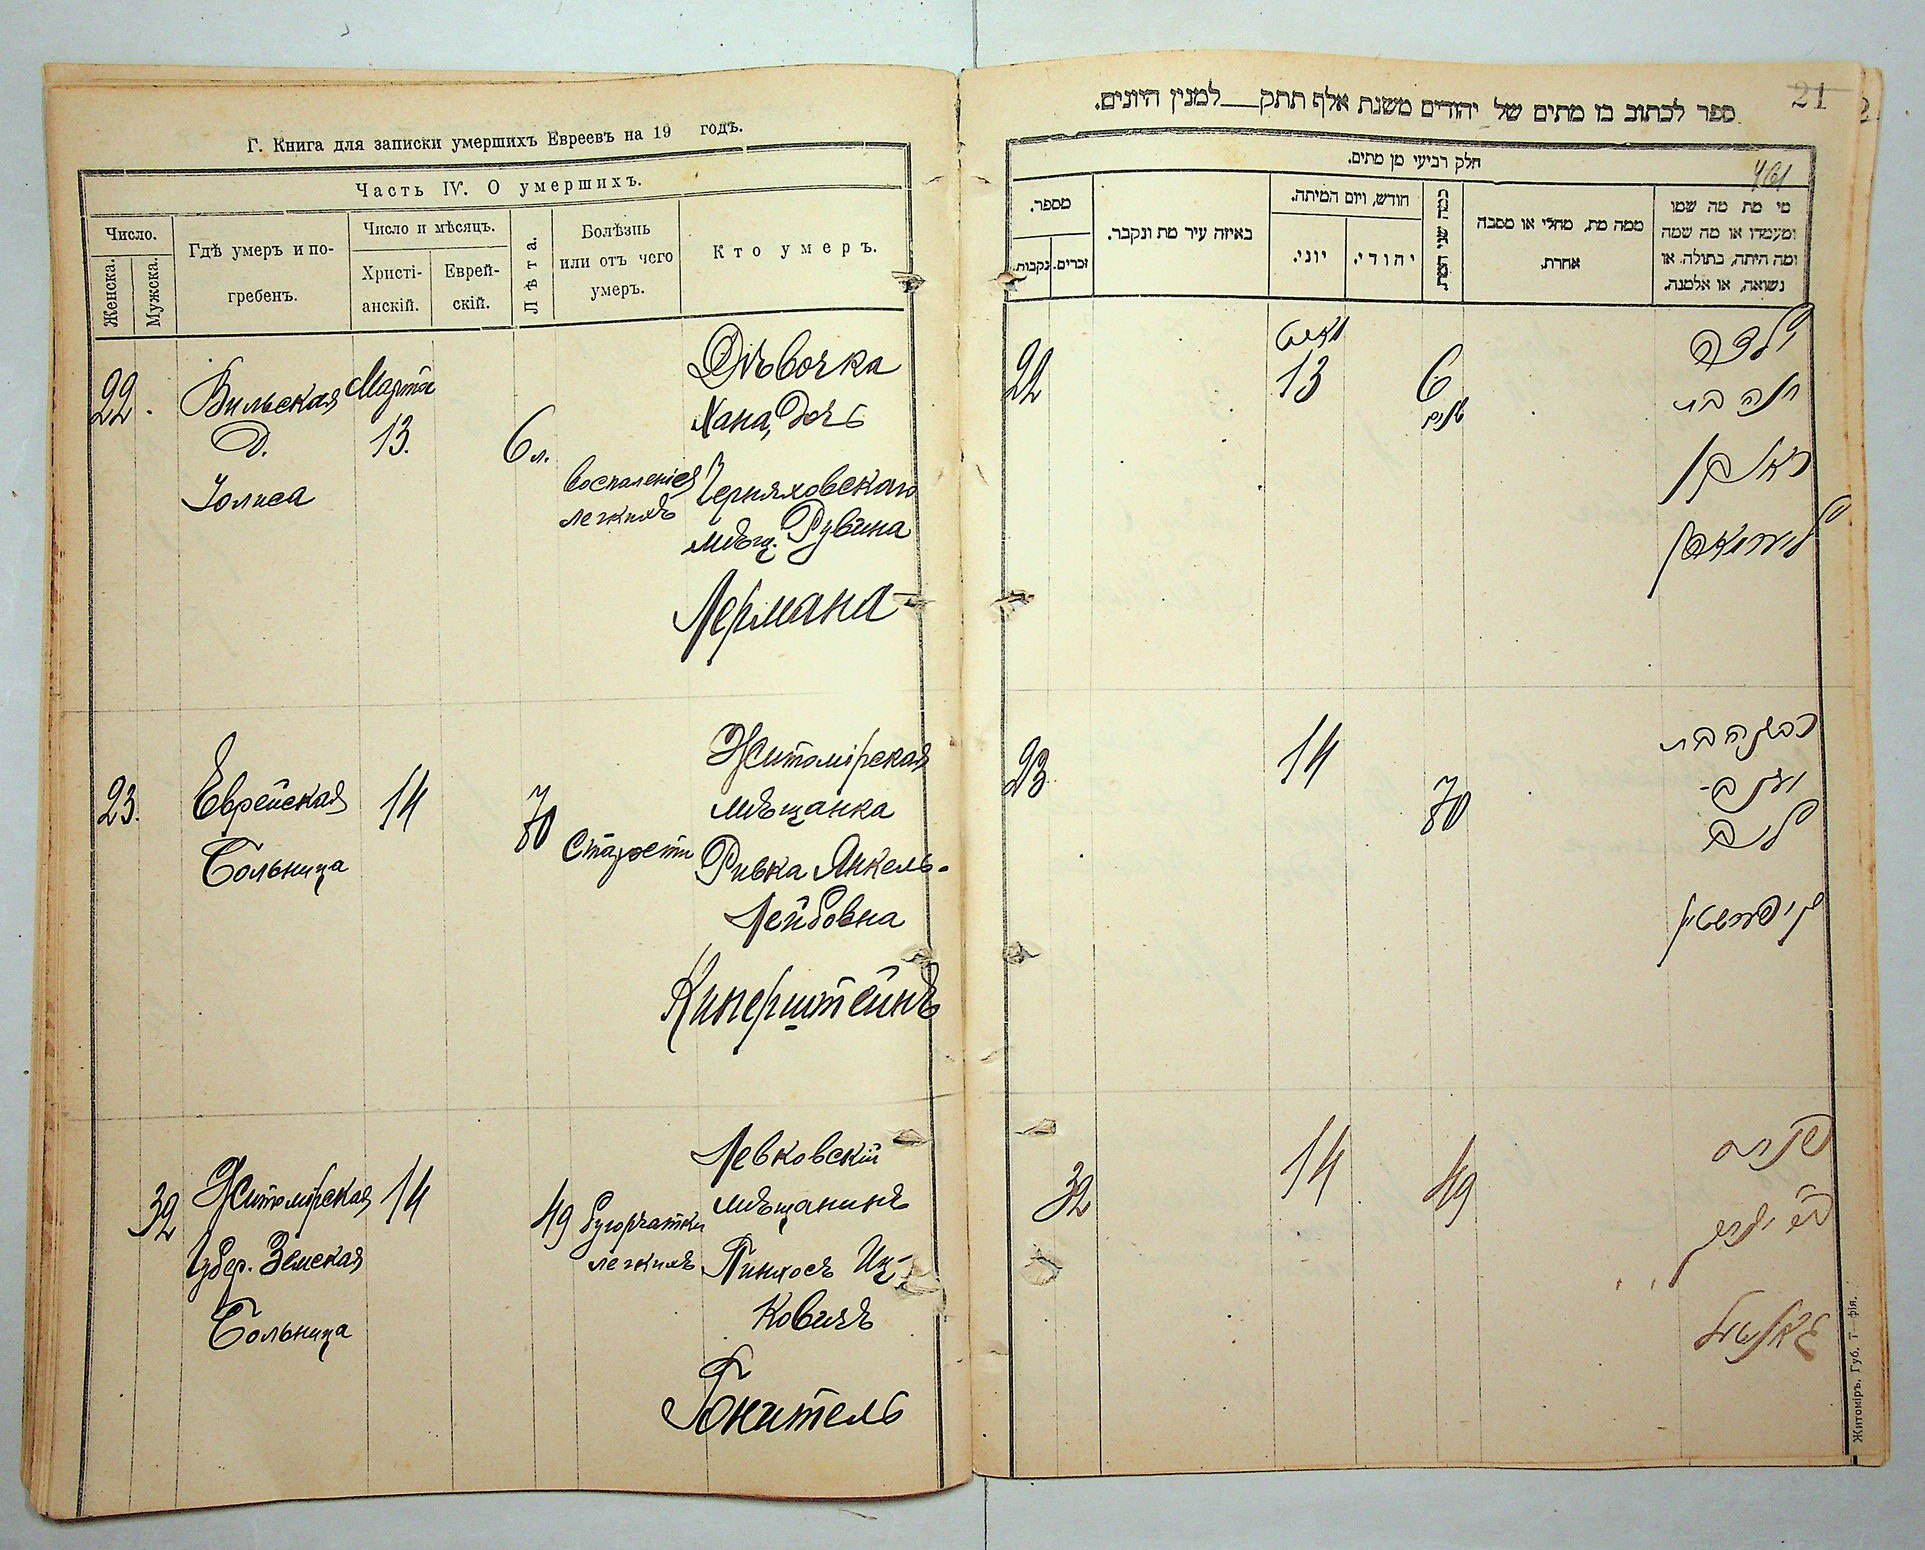 Г. Книга для записки умершихъ Евреевъ на 19 годъ.
Часть IV. О умершихъ.
Число.
Женска.
Мужска.
Гдѣ умеръ и по-
гребенъ.
Число и мѣсяцъ.
Христі-
анскій.
Еврей-
скій.
Лѣта.
Болѣзнь
или отъ чего
умеръ.
Кто умеръ.
22.
Вильская
д.
Марта
13.
6 л.
Воспаленіе
легкихъ
Дѣвочка
Хана, дочь
Черняховскаго
мѣщ. Рувина
Лермана
23.
Еврейская
Больница
14
70
Старости
Житомірская
мѣщанка
Ривка Янкель-
Лейбовна
Киперштейнъ
32
Житомірская
Губер. Земская
Больница
14
49
Бугорчатки
легкихъ
Левковскій
мѣщанинъ
Пинхосъ Иц-
ковичъ
21
461
ספר לכתוב בו מתים של יהודים משנת אלף תתק למנין היונים.
חלק רביעי מן מתים.
מספר.
נקבות.
זכרים.
באיזה עיר מת ונקבר.
חודש, ויום המיתה.
יוני.
יהודי.
כמה שני המת.
ממה מת, מחלי או מסבה
אחרת.
מי מת מה שמו
ומעמדו או מה שמה
ומה היתה, בתולה, או
נשואה, או אלמנה.
22
13
6
ילדה
חנה בת
ראובן
לערמאן
23
14
70
רבקה בת
יעקב
ליב
קיפערשטיין
32
14
49
פנחס
Житоміръ, Губ. Т—фія.